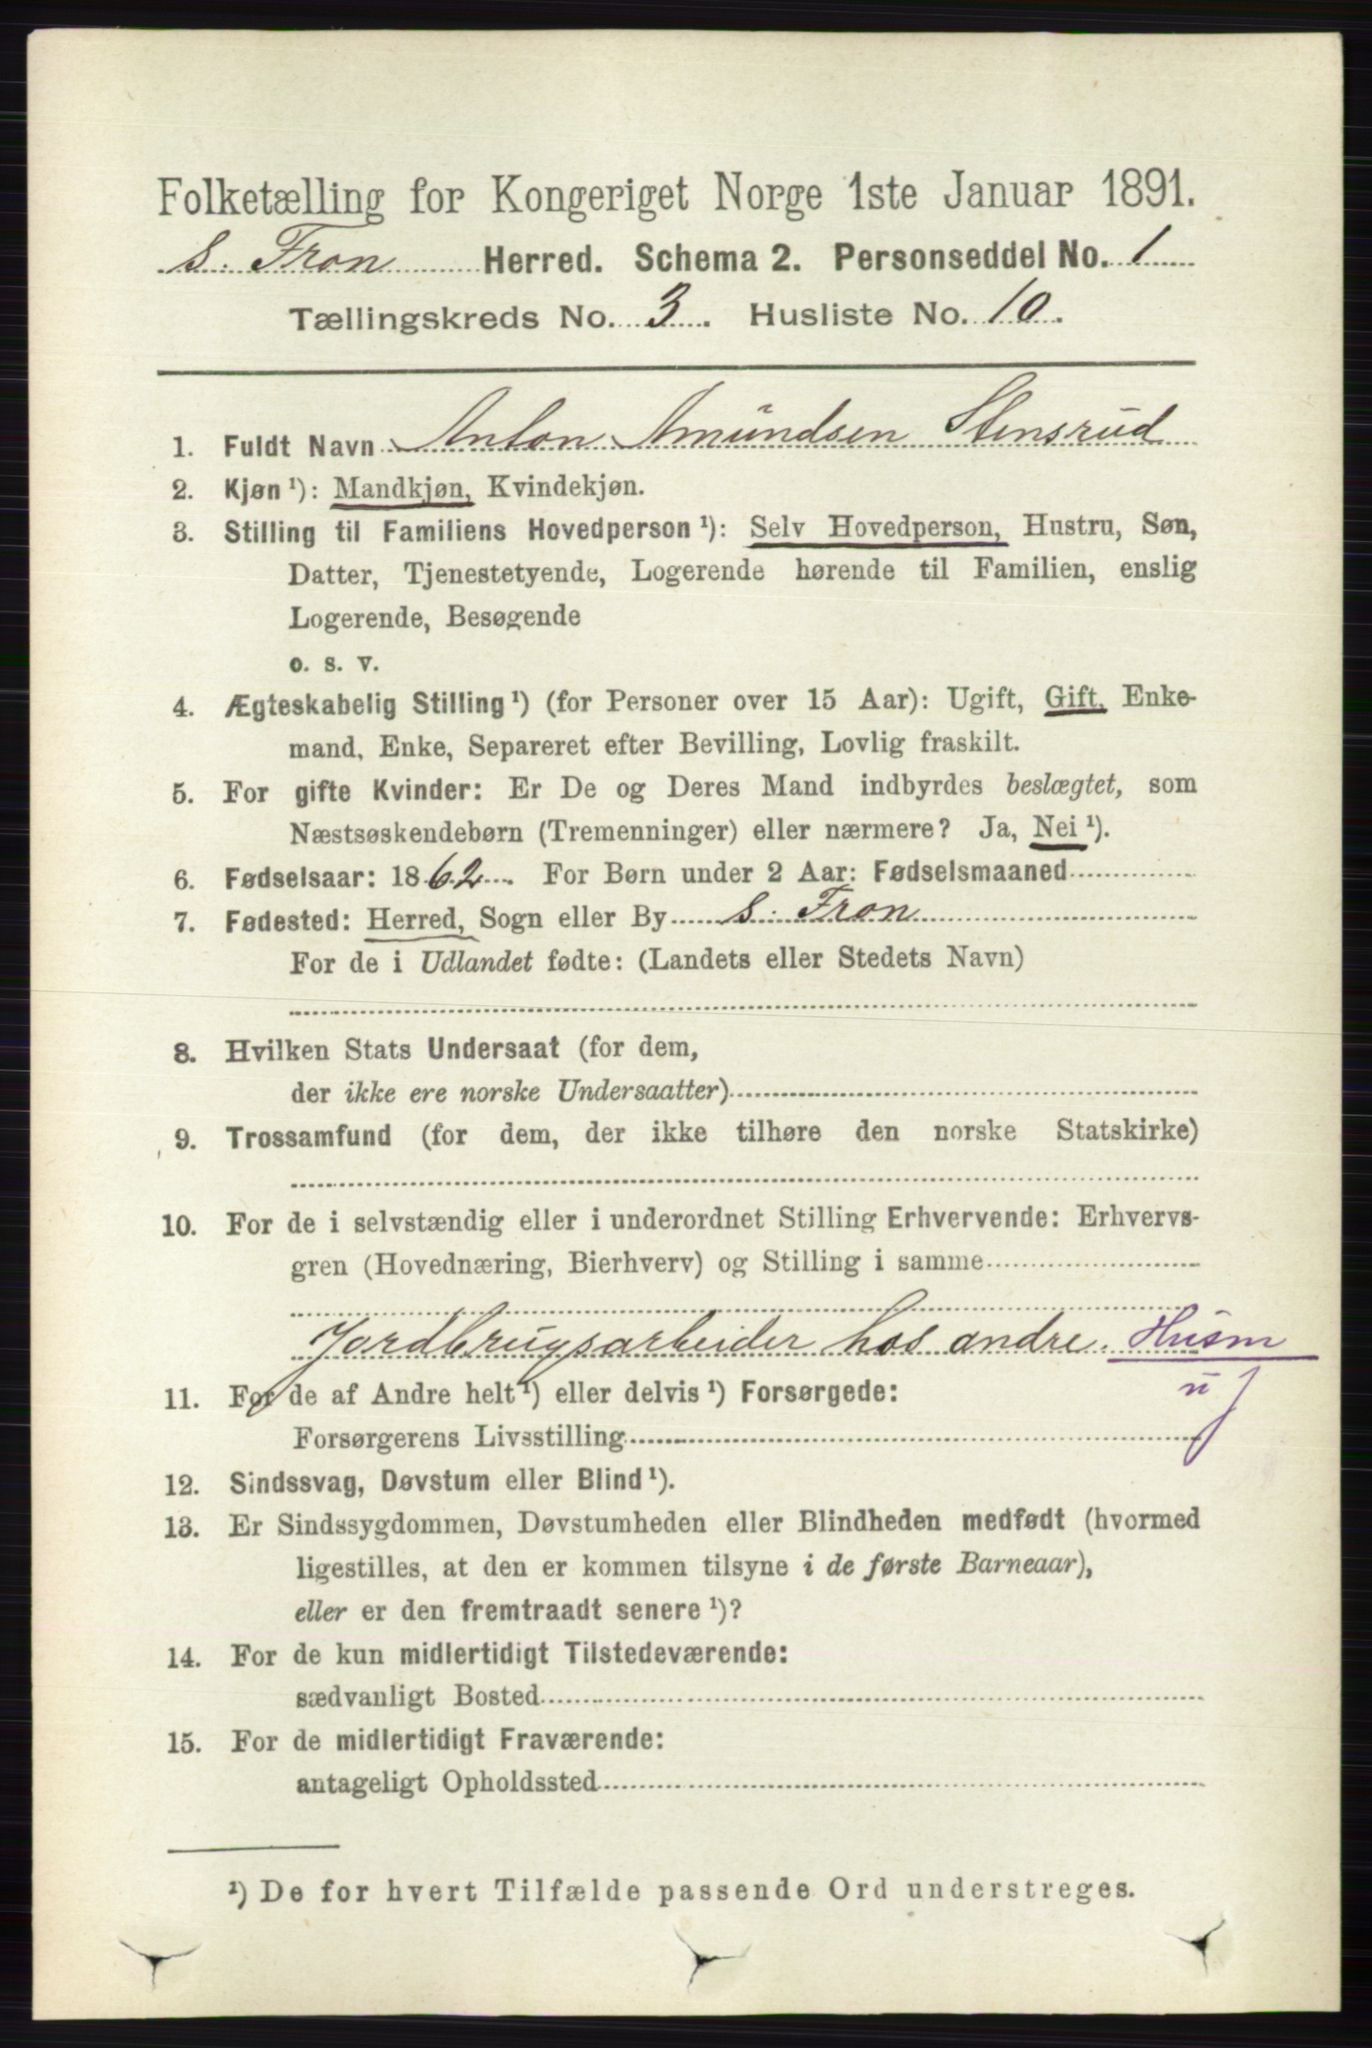 Folketælling for Kongeriget Norge 1ste Januar 1891.
S. Fron Herred. Schema 2. Personseddel No. 1
Tællingskreds No. 3. Husliste No. 10.
1. Fuldt Navn Anton Amundsen Stensrud
2. Kjøn ¹): Mandkjøn, Kvindekjøn.
3. Stilling til Familiens Hovedperson ¹): Selv Hovedperson, Hustru, Søn,
Datter, Tjenestetyende, Logerende hørende til Familien, enslig
Logerende, Besøgende
o. s. v.
4. Ægteskabelig Stilling ¹) (for Personer over 15 Aar): Ugift, Gift, Enke-
mand, Enke, Separeret efter Bevilling, Lovlig fraskilt.
5. For gifte Kvinder: Er De og Deres Mand indbyrdes beslægtet, som
Næstsøskendebørn (Tremenninger) eller nærmere? Ja, Nei ¹).
6. Fødselsaar: 1862. For Børn under 2 Aar: Fødselsmaaned
7. Fødested: Herred, Sogn eller By S. Fron
For de i Udlandet fødte: (Landets eller Stedets Navn)
8. Hvilken Stats Undersaat (for dem,
der ikke ere norske Undersaatter)
9. Trossamfund (for dem, der ikke tilhøre den norske Statskirke)
10. For de i selvstændig eller i underordnet Stilling Erhvervende: Erhvervs-
gren (Hovednæring, Bierhverv) og Stilling i samme
Jordbrugsarbeider hos andre. Husm
u J
11. For de af Andre helt ¹) eller delvis ¹) Forsørgede:
Forsørgerens Livsstilling
12. Sindssvag, Døvstum eller Blind ¹).
13. Er Sindssygdommen, Døvstumheden eller Blindheden medfødt (hvormed
ligestilles, at den er kommen tilsyne i de første Barneaar),
eller er den fremtraadt senere ¹)?
14. For de kun midlertidigt Tilstedeværende:
sædvanligt Bosted
15. For de midlertidigt Fraværende:
antageligt Opholdssted
¹) De for hvert Tilfælde passende Ord understreges.